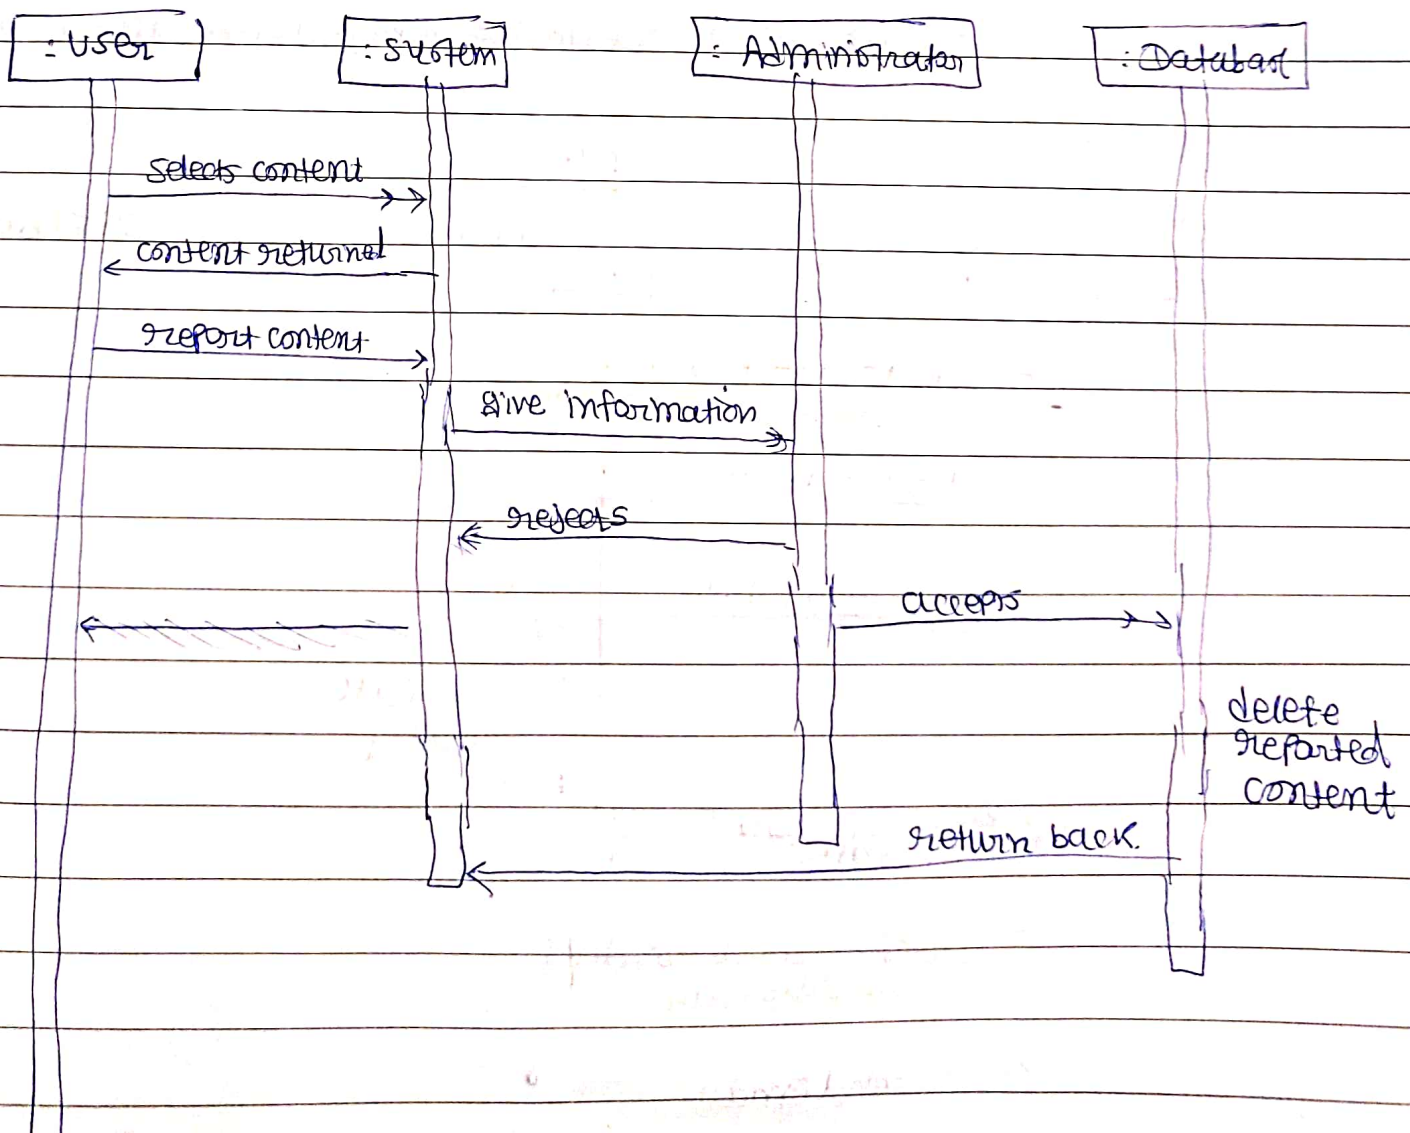 : User
: System
: Administrator
: Database
selects content
content returned
report content
give information
rejects
accepts
delete
reported
content
return back.